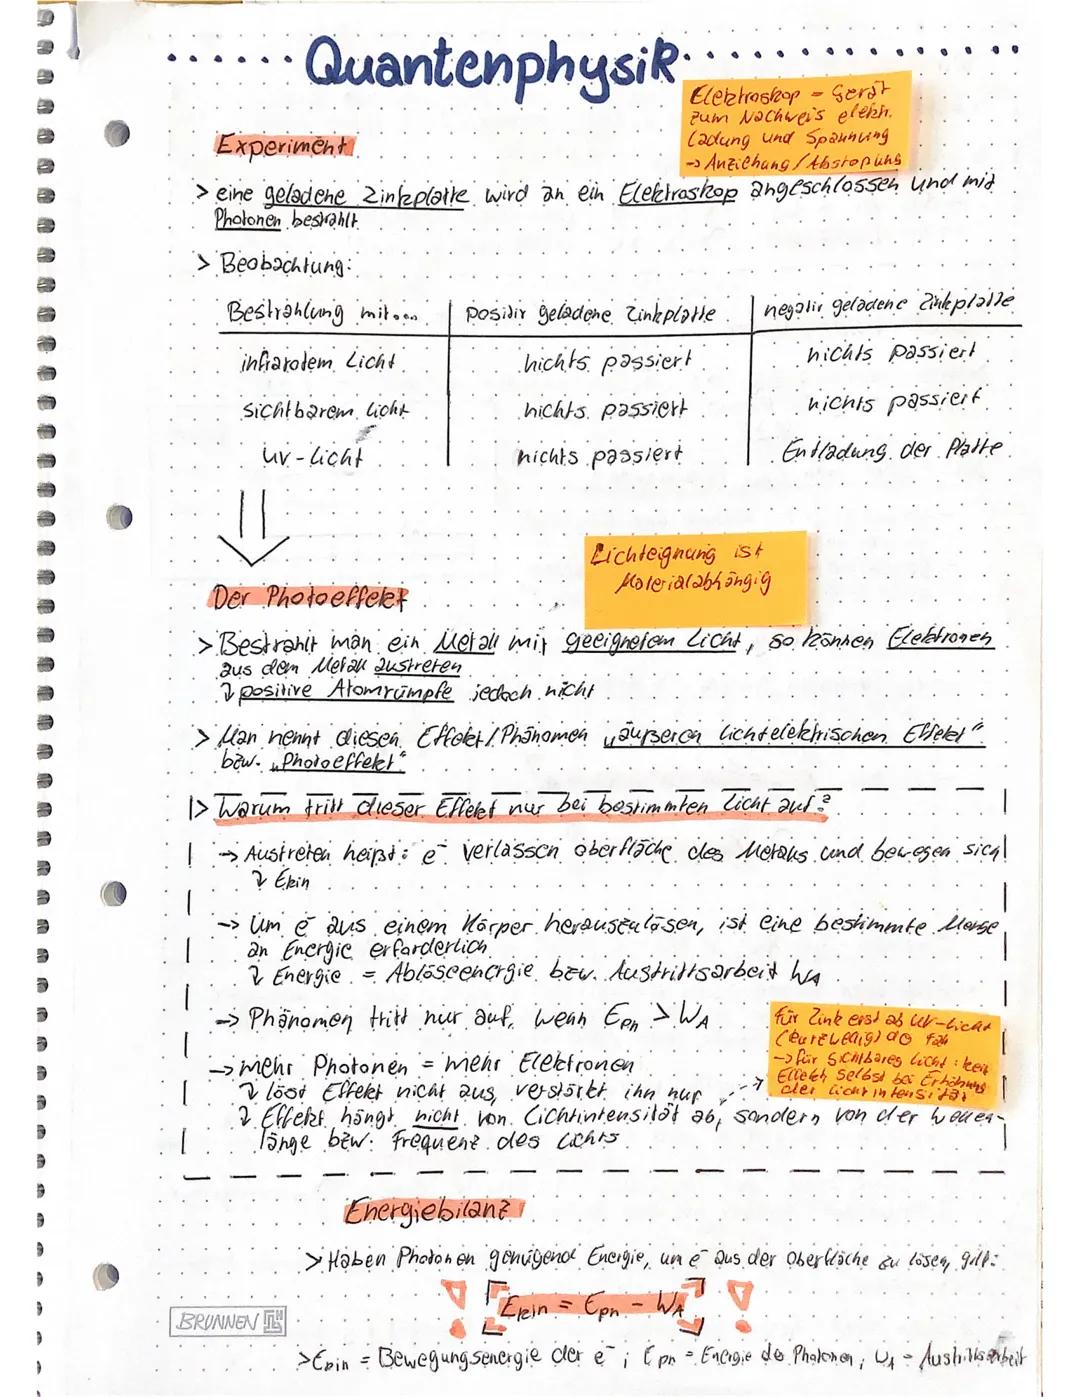 Quantenphysik
Elektroskop = Gerät
zum Nachweis elektr.
Ladung und Spannung
-> Anziehung / Abstoßung
Experiment
> eine geladene Zinkplatte wird an ein Elektroskop angeschlossen und mit
Photonen bestrahlt
> Beobachtung:
Bestrahlung mit... positiv geladene Zinkplatte negativ geladene Zinkplatte
infrarotem Licht nichts passiert nichts passiert
sichtbarem Licht nichts passiert nichts passiert
UV-Licht nichts passiert Entladung der Platte
Lichteignung ist
Materialabhängig
Der Photoeffekt
> Bestrahlt man ein Metall mit geeignetem Licht, so können Elektronen
aus dem Metall austreten
↳ positive Atomrümpfe jedoch nicht
> Man nennt diesen Effekt/Phänomen „äußeren lichtelektrischen Effekt"
bzw. „Photoeffekt"
> Warum tritt dieser Effekt nur bei bestimmten Licht auf?
-> Austreten heißt: e⁻ verlassen Oberfläche des Metalls und bewegen sich
↳ Ekin
-> Um e⁻ aus einem Körper herauszulösen, ist eine bestimmte Menge
an Energie erforderlich
↳ Energie = Ablöseenergie bzw. Austrittsarbeit WA
-> Phänomen tritt nur auf, wenn Eph > WA
für Zink erst ab UV-Licht
(kurzwellig) der Fall
-> für sichtbares Licht: kein
Effekt selbst bei Erhöhung
der Lichtintensität
-> mehr Photonen = mehr Elektronen
↳ löst Effekt nicht aus, verstärkt ihn nur
↳ Effekt hängt nicht von Lichtintensität ab, sondern von der Wellen-
länge bzw. Frequenz des Lichts
Energiebilanz
> Haben Photonen genügend Energie, um e⁻ aus der Oberfläche zu lösen, gilt:
! Ekin = Eph - WA !
BRUNNEN
> Ekin = Bewegungsenergie der e⁻ ; Eph = Energie der Photonen ; WA = Austrittsarbeit